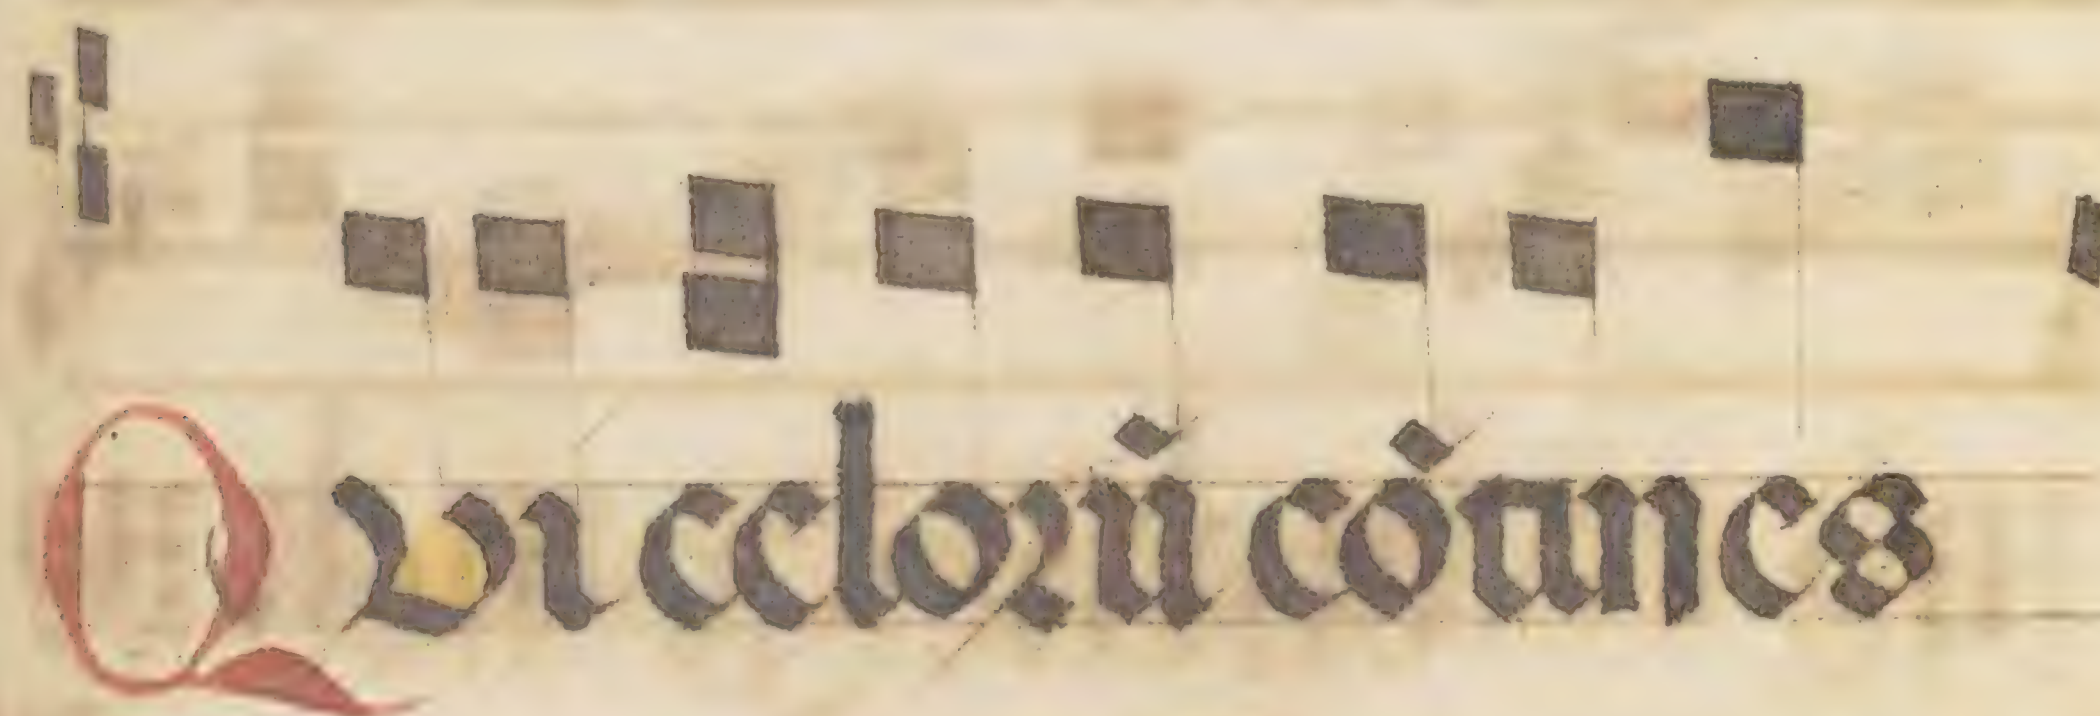 Qvi celorū cōtines